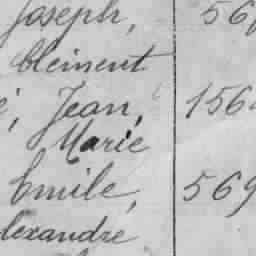 Joseph, 56
Clément
Jean, 156
Marie
Emile, 569
lexandre